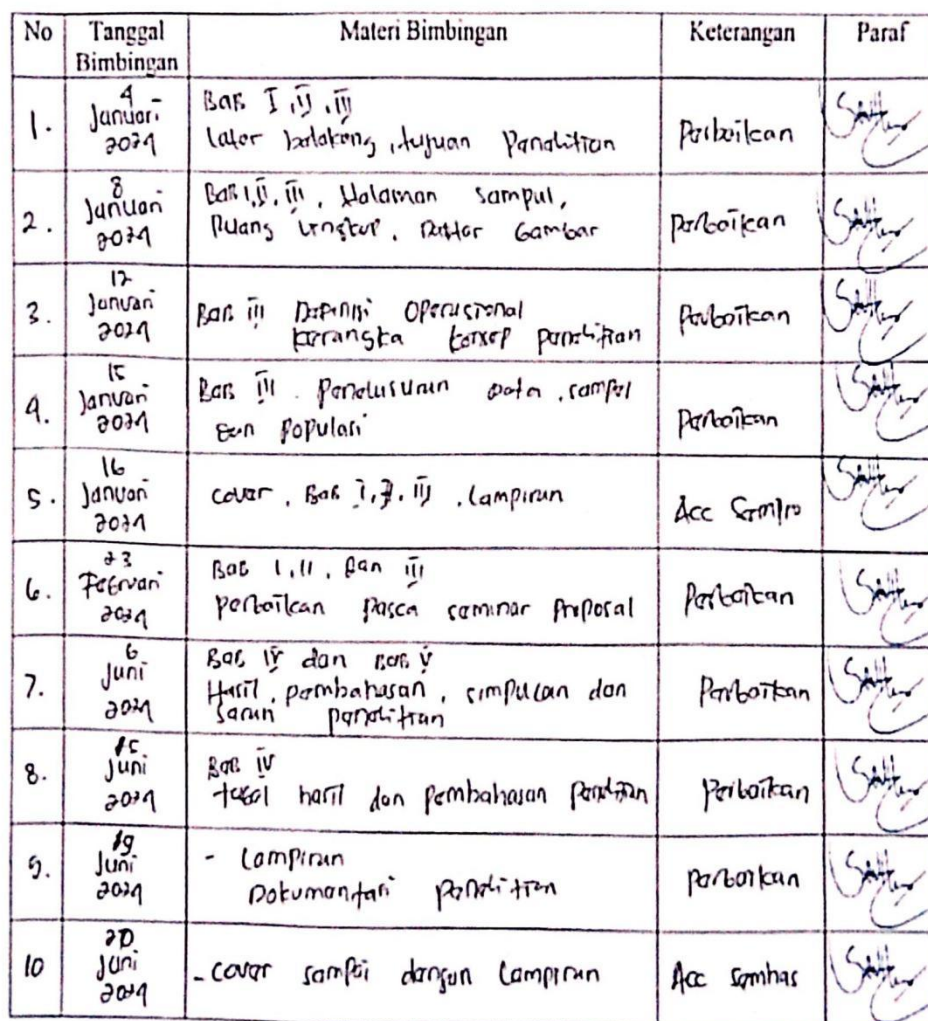 No Tanggal Bimbingan Materi Bimbingan Keterangan Paraf
1. 4 Januari 2024
Bab I, II, III
Latar belakang, tujuan Penelitian
Perbaikan
2. 8 Januari 2024
Bab I, II, III, Halaman sampul,
Ruang Lingkup, Daftar Gambar
Perbaikan
3. 12 Januari 2024
Bab III Definisi Operasional
kerangka konsep penelitian
Perbaikan
4. 15 Januari 2024
Bab III. Penelusuran data, sampel
dan Populasi
Perbaikan
5. 16 Januari 2024
cover, Bab I, II, III, Lampiran
Acc Sempro
6. 23 Februari 2024
Bab I, II, Dan III
perbaikan pasca seminar Proposal
Perbaikan
7. 6 Juni 2024
Bab IV dan Bab V
Hasil, pembahasan, simpulan dan
saran penelitian
Perbaikan
8. 15 Juni 2024
Bab IV
hasil dan pembahasan penelitian
Perbaikan
9. 19 Juni 2024
- Lampiran
Dokumentasi penelitian
Perbaikan
10 20 Juni 2024
- cover sampai dengan Lampiran
Acc semhas